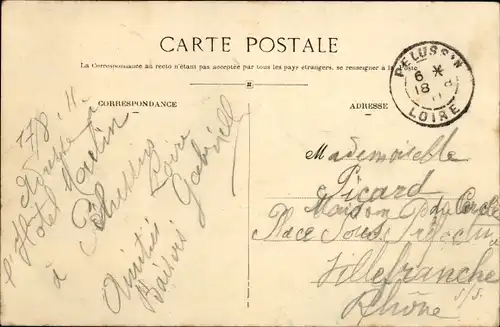 CARTE POSTALE
La Correspondance au recto n'étant pas acceptée par tous les pays étrangers, se renseigner à la Poste
CORRESPONDANCE
ADRESSE
PELUSSIN
6 *
18 8
11
LOIRE
l'Hôtel Moulin
à Pélussin
Loire
Amitiés
Baisers Gabrielle
Mademoiselle
Picard
Maison du Cercle
Place
Villefranche
s/s
Rhône